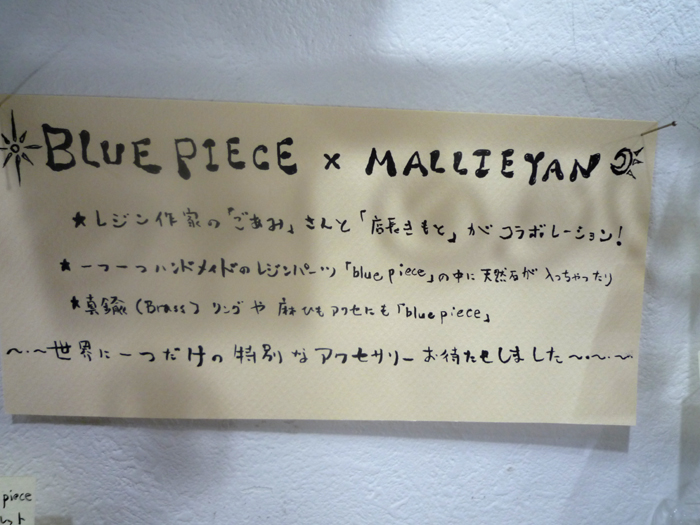 BLUE PIECE × MALLIEYAN
★レジン作家の「ごあみ」さんと「店長きもと」がコラボレーション！
★一つ一つハンドメイドのレジンパーツ「blue piece」の中に天然石が入っちゃったり
★真鍮(Brass)リングや麻ひもアクセにも「blue piece」
～・～世界に一つだけの特別なアクセサリーお待たせしました～・～・～
piece
ット